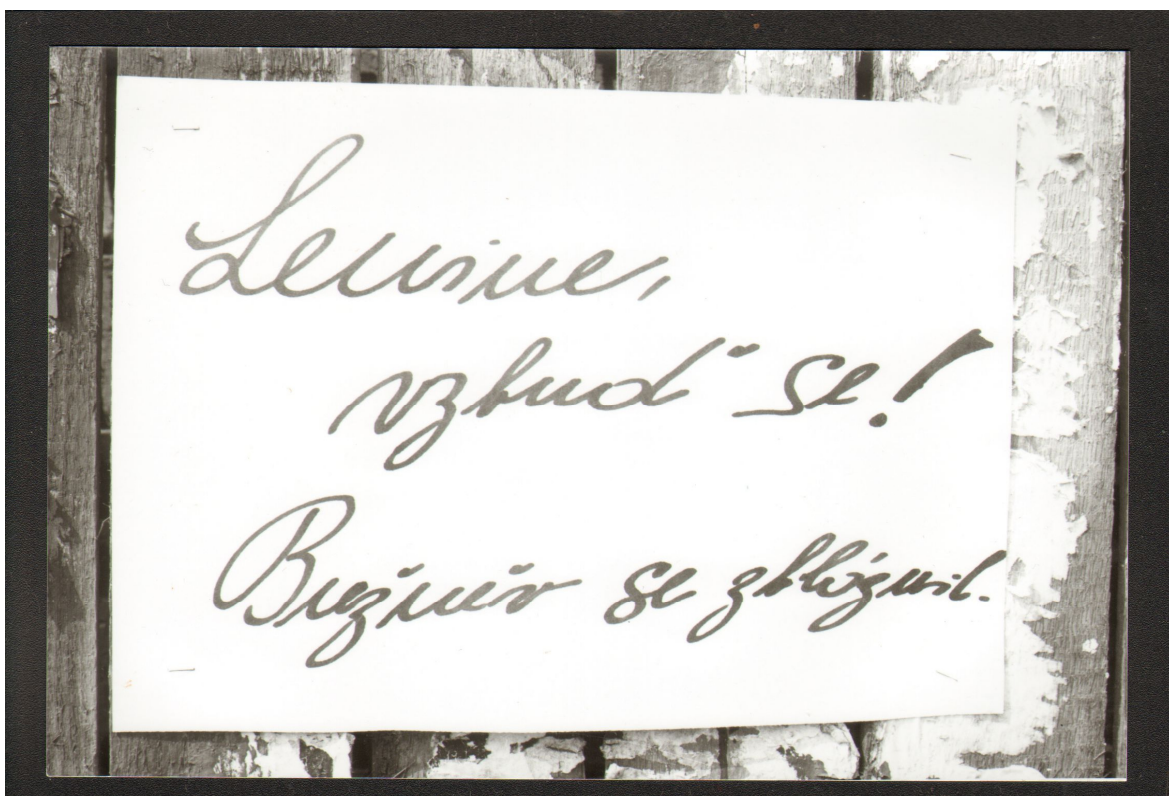 Lenine,
vzbuď se!
Brežněv se zbláznil.